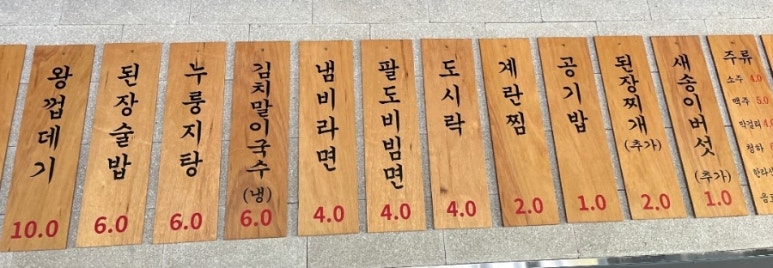 왕껍데기
10.0
된장술밥
6.0
누룽지탕
6.0
김치말이국수
(냉)
6.0
냄비라면
4.0
팔도비빔면
4.0
도시락
4.0
계란찜
2.0
공기밥
1.0
된장찌개
(추가)
2.0
새송이버섯
(추가)
1.0
주류
소주 4.0
맥주 5.0
막걸리 4.0
청하